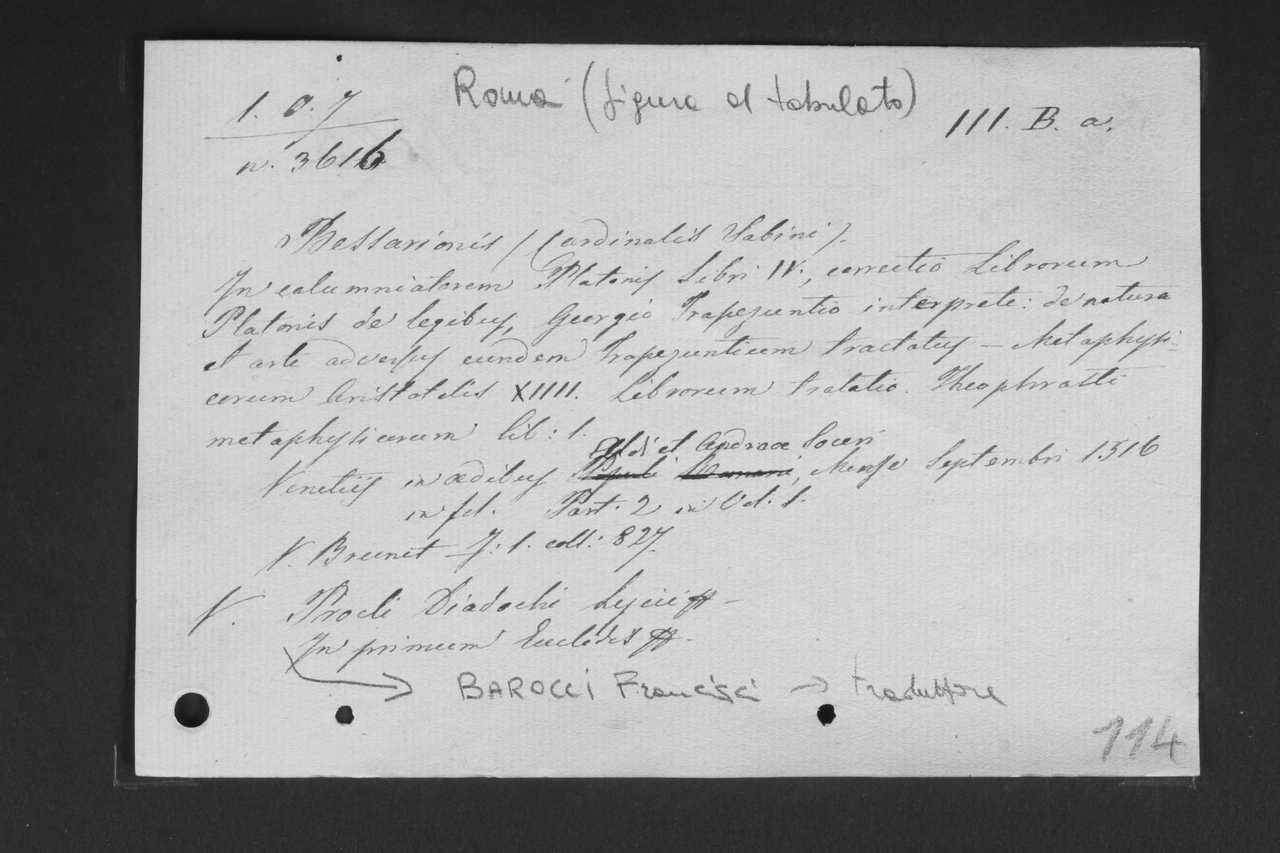 Roma (figura al tabulato)
1. 0. 7
n. 3616
III. B. a.
Bessarionis / Cardinalis Sabini /.
In calumniatorem Platonis Libri IV., correctio Librorum
Platonis de legibus, Georgio Trapezuntio interprete: de natura
et arte adversus eundem Trapezuntium tractatus – Metaphysi=
corum Aristotelis XIIII. Librorum tratatio. Theophrasti
metaphysicorum lib: 1.
Aldi et Andreae Soceri
Venetiis in ædibus , Mense Septembri 1516
in fol. Part. 2 in Vol. 1.
V. Brunet T: 1. coll: 827.
V. Procli Diadochi Lycii –
In primum Euclidis
BAROCCI Francisci → traduttore
114